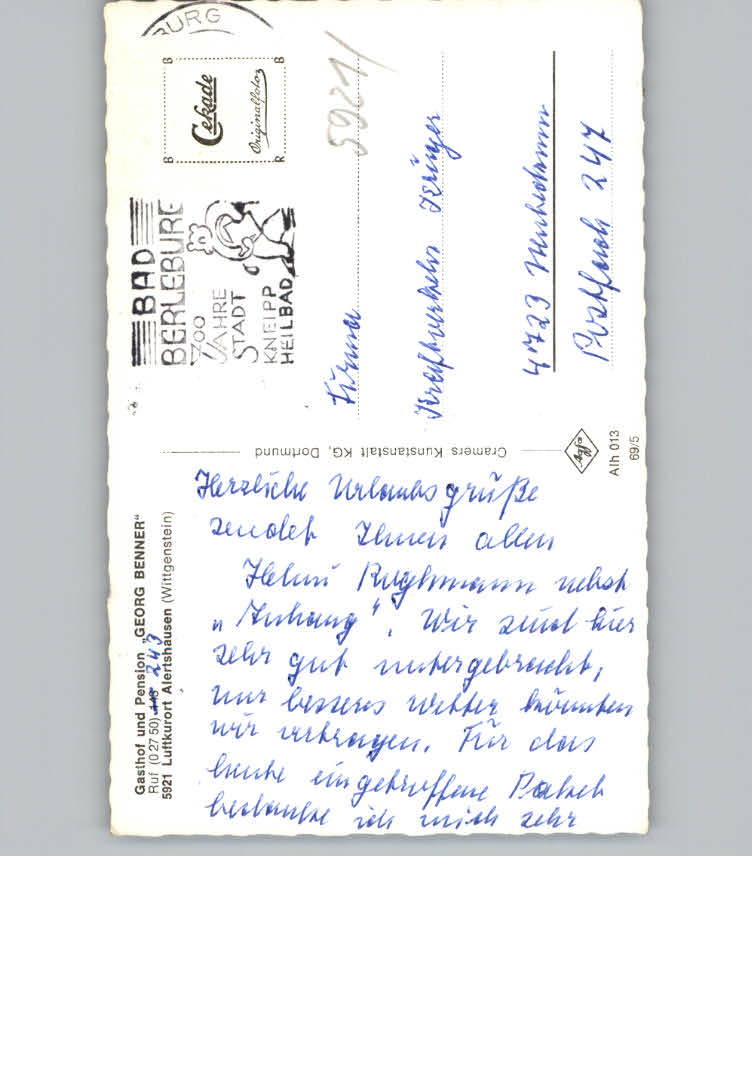 Gasthof und Pension „GEORG BENNER“
Ruf (0 27 50) 243
5921 Luftkurort Alertshausen (Wittgenstein)
Herzliche Urlaubsgrüße
sendet Ihnen allen
Helmi nebst
„Anhang“. Wir sind hier
sehr gut untergebracht,
nur besseres Wetter könnten
wir vertragen. Für das
heute eingetroffene Paket
bedanke ich mich sehr
Cramers Kunstanstalt KG, Dortmund
Agfa
Alh 013
69/5
BURG
BAD
BERLEBURG
700
JAHRE
STADT
KNEIPP
HEILBAD
B B
Cekade
Originalfoto
B R
5921/
Firma
Kraftverkehr Krüger
4723 Neubeckum
Postfach 247